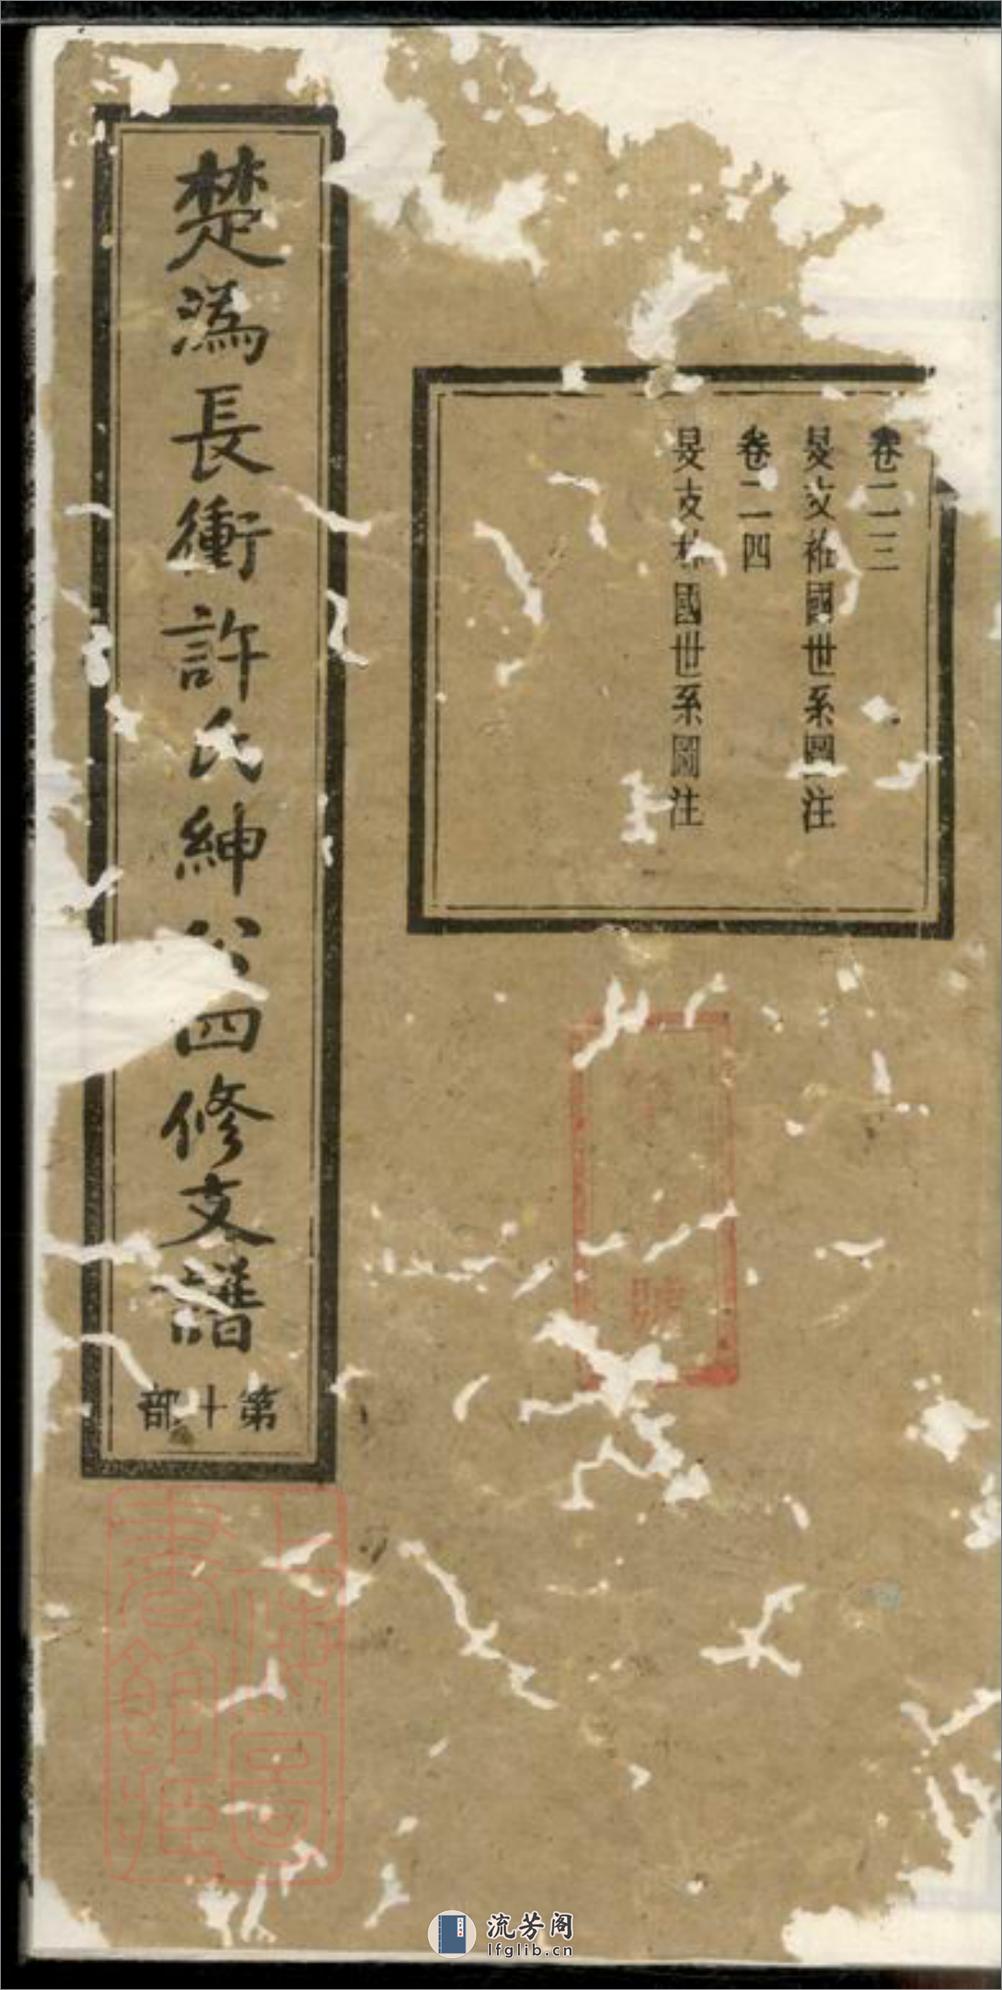 卷二三
旻支國世系圖注
卷二四
旻支國世系圖注
楚溈長衝許氏紳公四修支譜
第十部
號
上海圖
書館藏
流芳阁
lfglib.cn